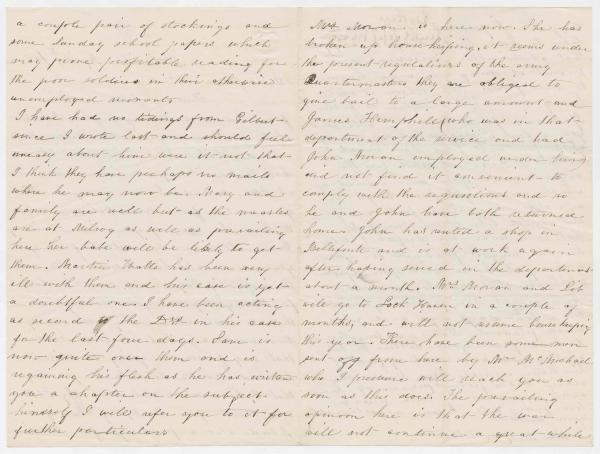 a couple pair of stockings and
some Sunday school papers which
may prove profitable reading for
the poor soldiers in their otherwise
unemployed moments
I have had no tidings from Gilbert
since I wrote last and should feel
uneasy about him were it not that
I think they have perhaps no mails
where he may now be. Mary and
family are well but as the measles
are at Milroy as well as prevailing
here her babe will be likely to get
them. Martin has been very
ill with them and his case is yet
a doubtful one. I have been acting
as second to the Dr in his case
for the last four days. Sam is
now quite over them and is
regaining his flesh as he has writen
you a chapter on the subject
himself I will refer you to it for
further particulars
Mrs Moran is here now. She has
broken up housekeeping, it seems under
the present regulations of the army
Quartermasters they are obliged to
give bail to a large amount and
James Hemphill (who was in that
department of the service and had
John Moran employed under him)
did not find it convenient to
comply with the requisitions and so
he and John have both returned
home. John has rented a shop in
Bellefonte and is at work again
after having served in the department
about a month. Mrs Moran and
will go to Lock Haven in a couple of
months, and will not resume housekeeping
this year. There have been some men
sent off from here by Mr McMichael
who I presume will reach you as
soon as this does. The prevailing
opinion here is that the war
will not continue a great while